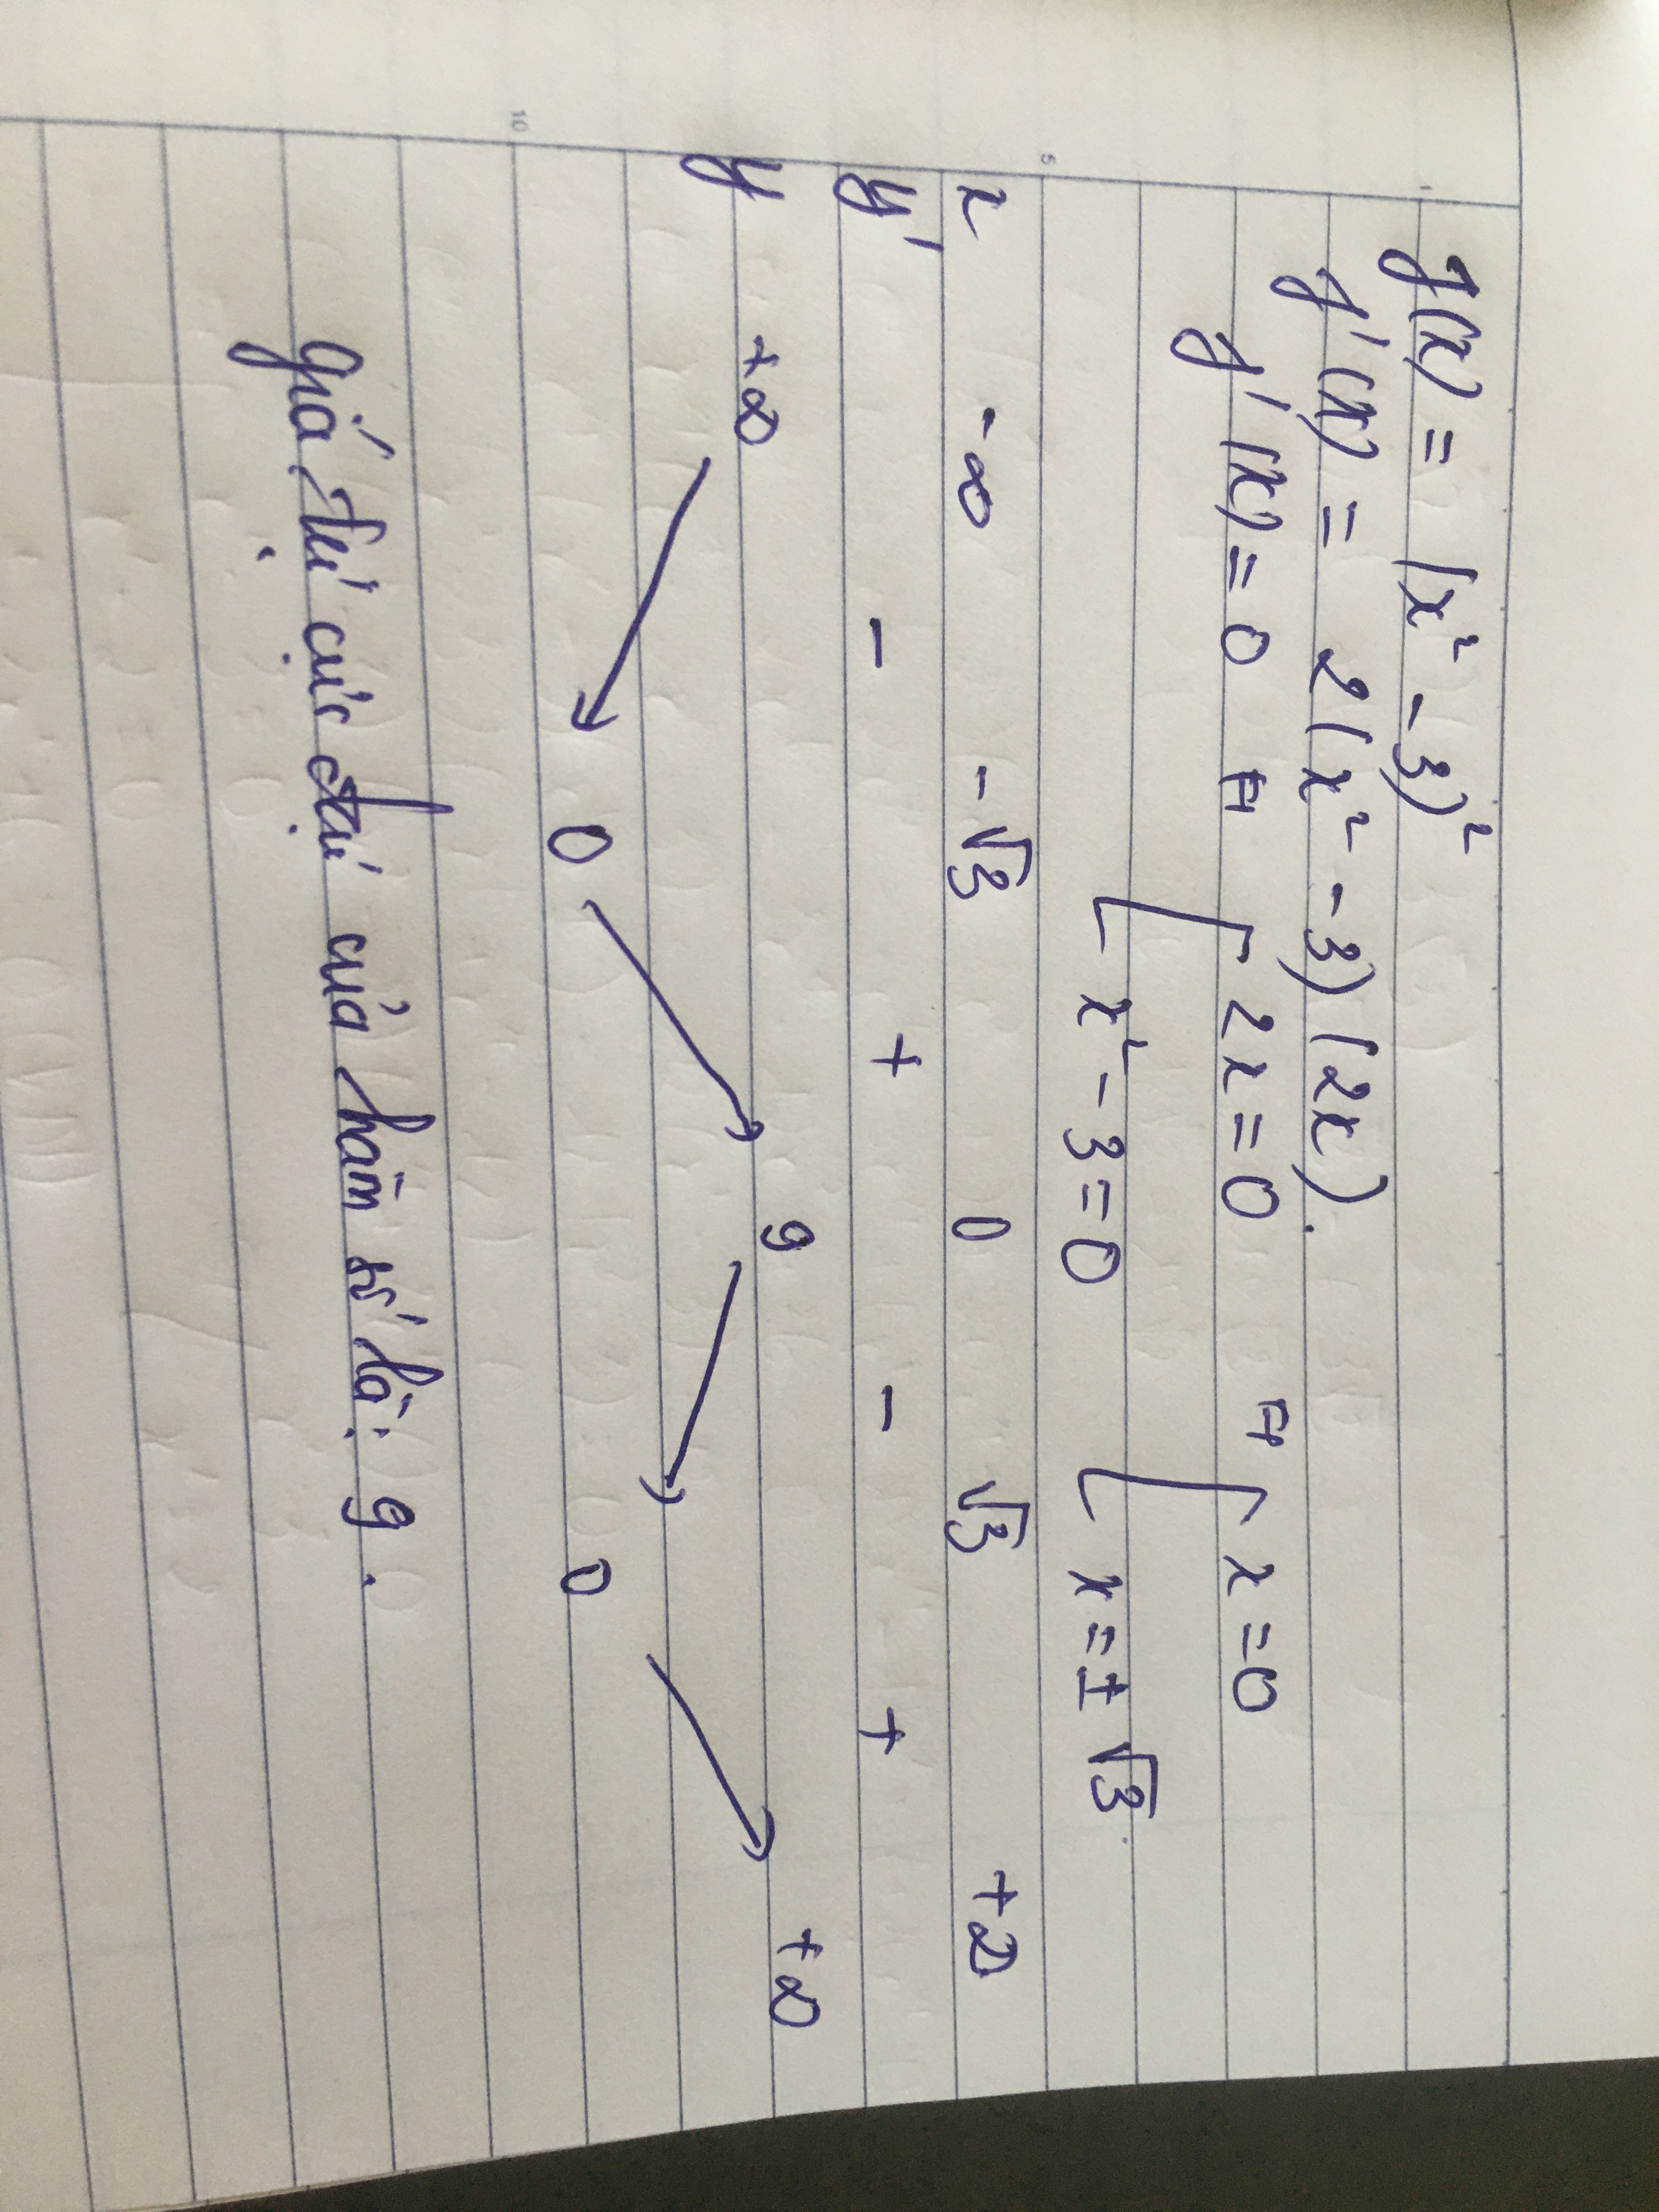 y(x) = (x² - 3)²
y'(x) = 2(x² - 3)(2x).
y'(x) = 0 ⇔ [ 2x = 0 ⇔ [ x = 0
x² - 3 = 0 x = ± √3.
x -∞ -√3 0 √3 +∞
y' - + - +
y +∞ ↘ 0 ↗ 9 ↘ 0 ↗ +∞
giá trị cực đại của hàm số là: 9.
1
5
10